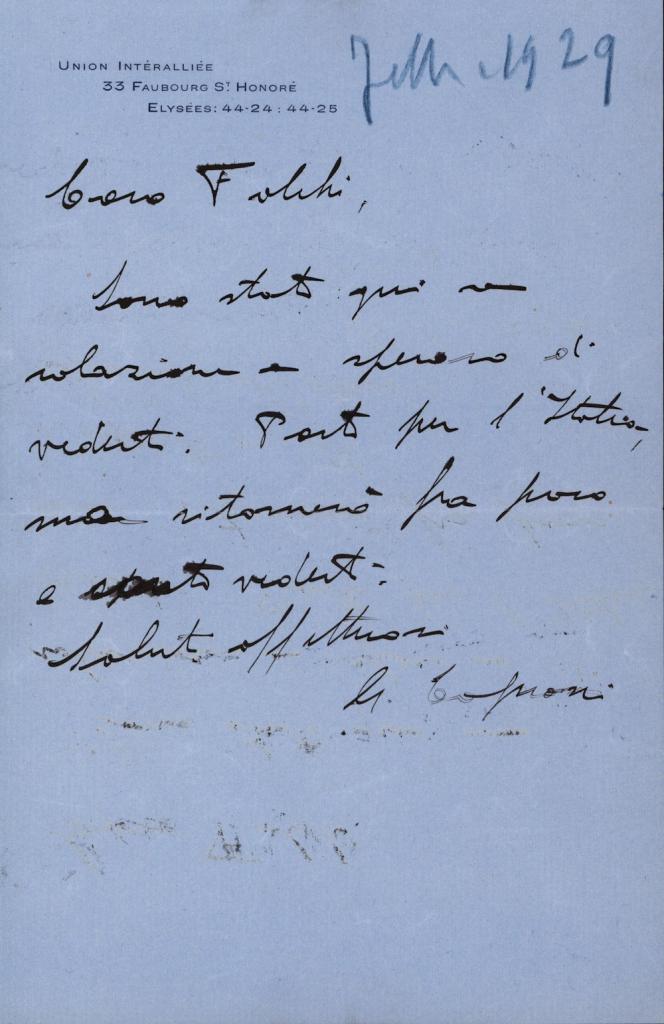 Union Intéralliée
33 Faubourg St Honoré
Elysées: 44-24 : 44-25
1929
Caro Folchi,
Sono stato qui a
colazione e speravo di
vederti. Parto per l'Italia,
ma ritornerò fra poco
e vederti.
Saluti affettuosi
G. Caproni